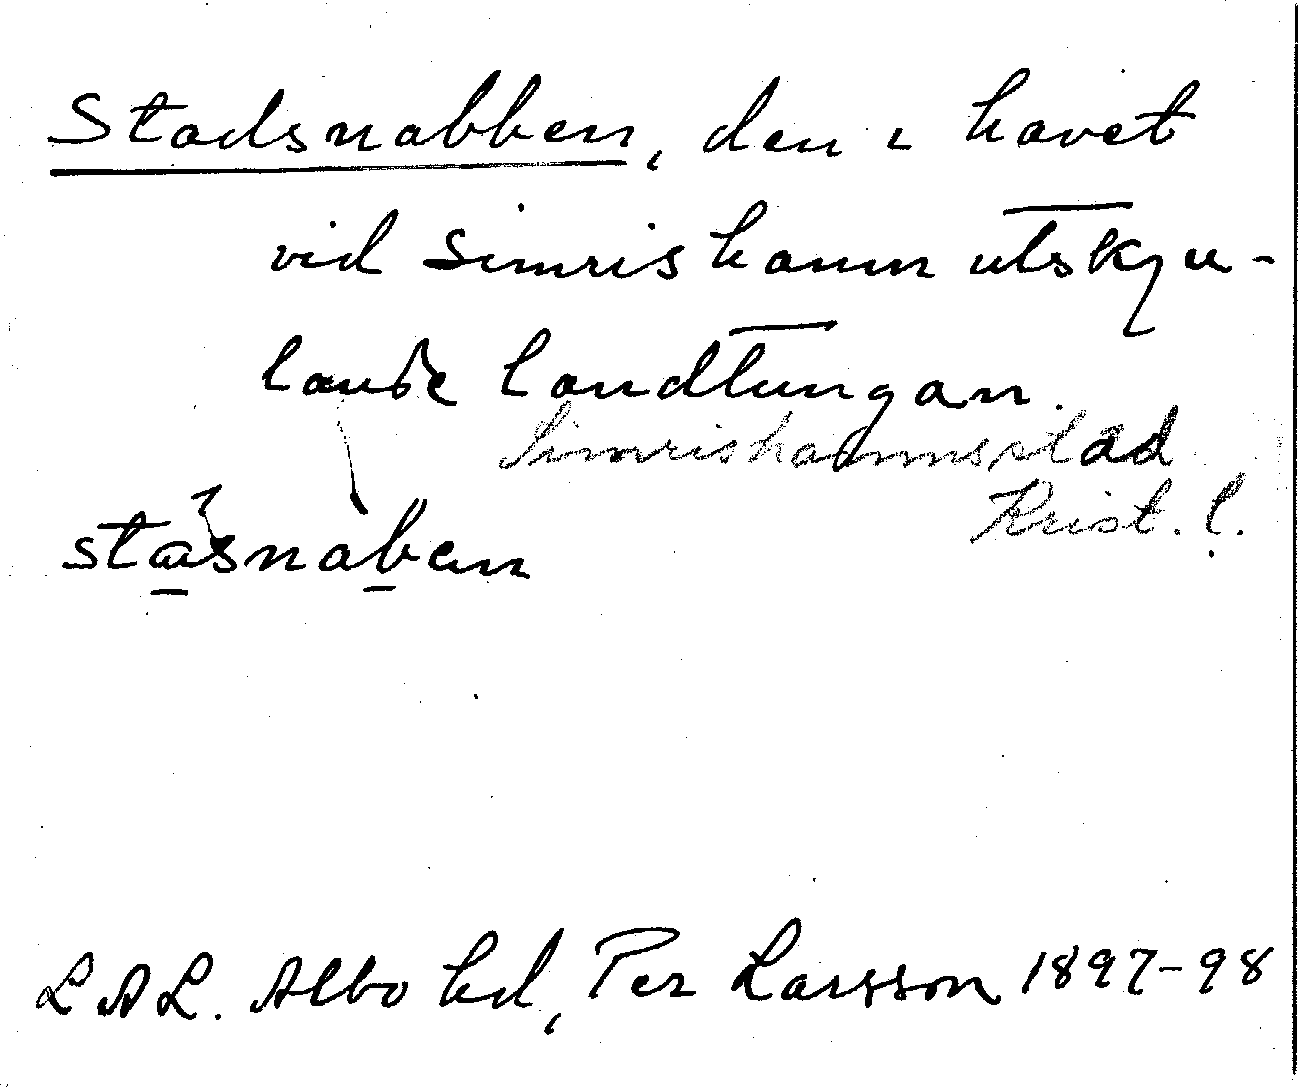 Stadsnabben, den i havet
vid Simrishamn utskju-
lande landtungan.
Simrishamns stad
Krist. l.
stasnaben
LAL. Albo hd, Per Larsson 1897-98